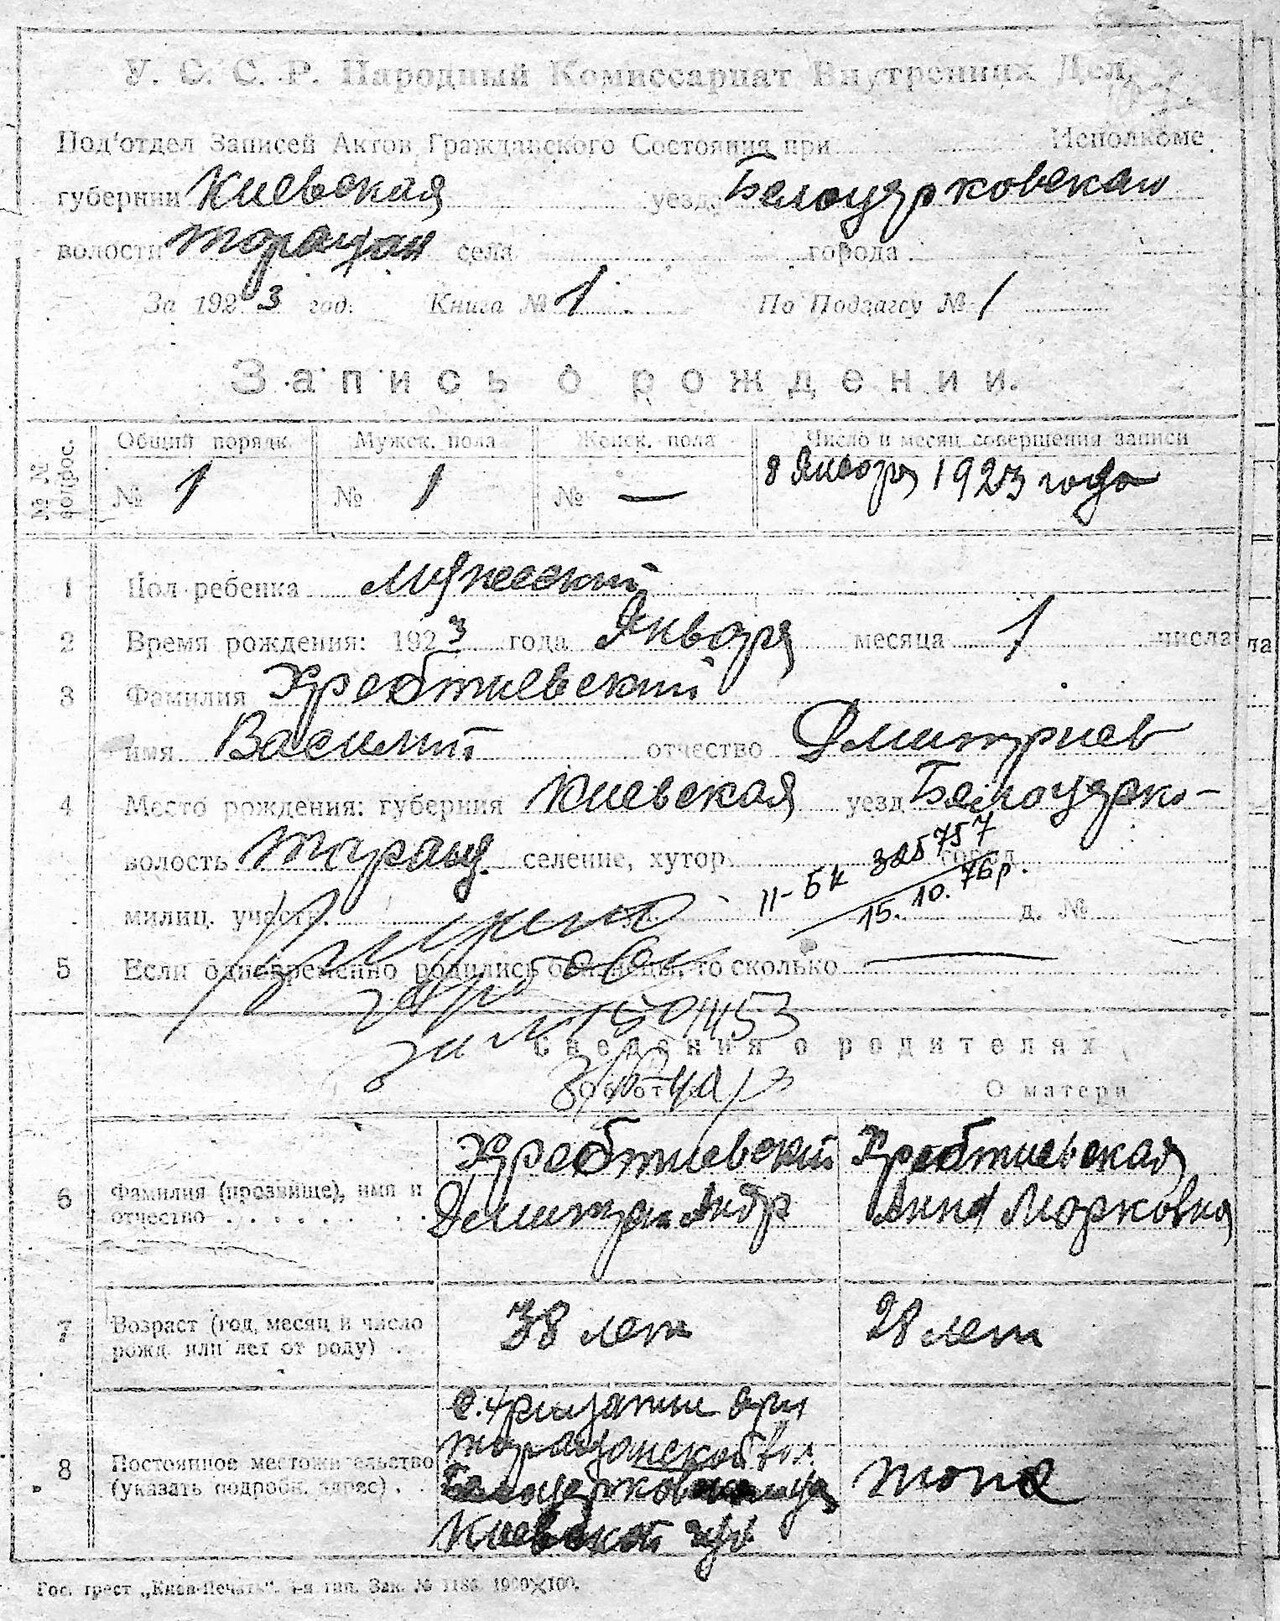 У. С. С. Р. Народный Комиссариат Внутренних Дел.
Под'отдел Записей Актов Гражданского Состояния при Исполкоме
губернии Киевская уезд Белоцерковскаю
волости Таращан села города
За 1923 год. Книга № 1 По Подзагсу № 1
Запись о рождении.
№ № вопрос.
Общий порядк. Мужск. пола Женск. пола Число и месяц совершения записи
№ 1 № 1 № — 8 Января 1923 года
1 Пол ребенка мужеский
2 Время рождения: 1923 года Января месяца 1 числа
3 Фамилия Хребтиевский
имя Василий отчество Дмитриев
4 Место рождения: губерния Киевская уезд Белоцерко-
волость Таращ. селение, хутор. город
II-БК 325757
милиц. участк. д. №
15. 10. 76р.
5 Если одновременно родились близнецы, то сколько —
Сведения о родителях
Об отце О матери
6 Фамилия (прозвище), имя и отчество Хребтиевский Дмитри Андр Хребтиевская Анна Морковна
7 Возраст (год, месяц и число рожд. или лет от роду) 38 лет 28 лет
8 Постоянное местожительство (указать подробн. адрес) при
Таращанской вол.
Белоцерковского
Киевской губ.
тоже
Гос. трест „Киев-Печать". 1-я тип. Зак. № 1186. 1900×100.